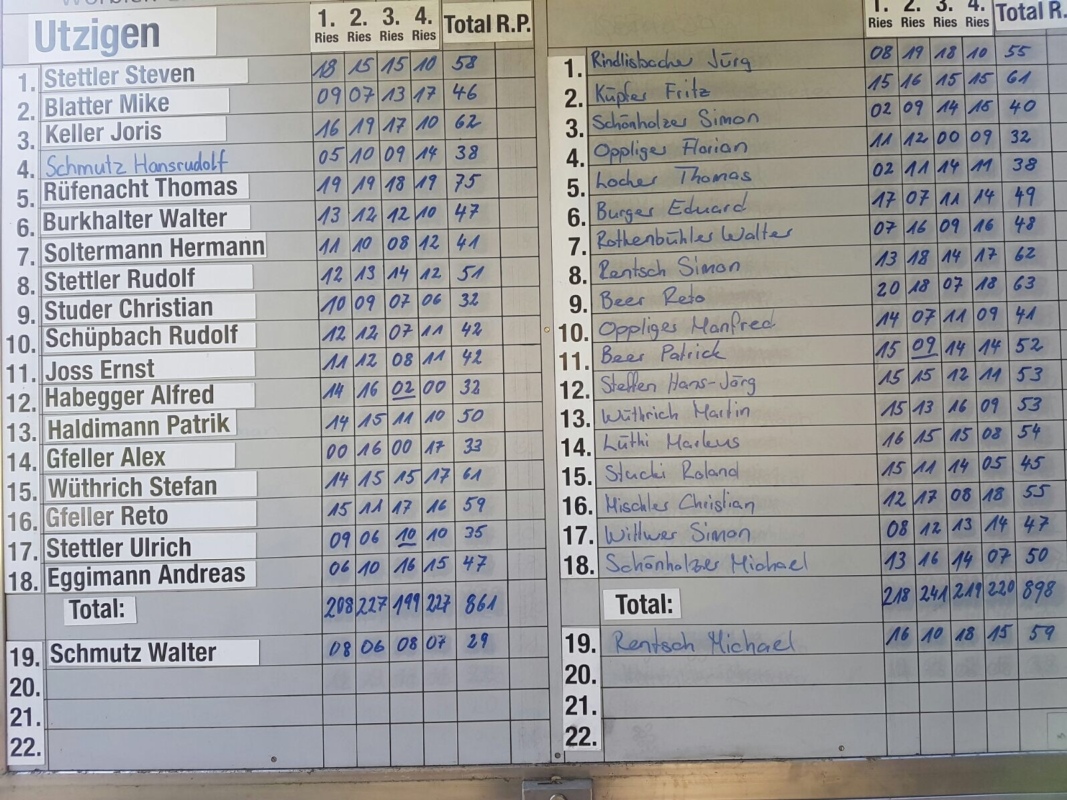 Utzigen 1. Ries 2. Ries 3. Ries 4. Ries Total R.P.
1. Stettler Steven 18 15 15 10 58
2. Blatter Mike 09 07 13 17 46
3. Keller Joris 16 19 17 10 62
4. Schmutz Hansrudolf 05 10 09 14 38
5. Rüfenacht Thomas 19 19 18 19 75
6. Burkhalter Walter 13 12 12 10 47
7. Soltermann Hermann 11 10 08 12 41
8. Stettler Rudolf 12 13 14 12 51
9. Studer Christian 10 09 07 06 32
10. Schüpbach Rudolf 12 12 07 11 42
11. Joss Ernst 11 12 08 11 42
12. Habegger Alfred 14 16 02 00 32
13. Haldimann Patrik 14 15 11 10 50
14. Gfeller Alex 00 16 00 17 33
15. Wüthrich Stefan 14 15 15 17 61
16. Gfeller Reto 15 11 17 16 59
17. Stettler Ulrich 09 06 10 10 35
18. Eggimann Andreas 06 10 16 15 47
Total: 208 227 199 227 861
19. Schmutz Walter 08 06 08 07 29
20.
21.
22.
1. Ries 2. Ries 3. Ries 4. Ries Total R.
1. Rindlisbacher Jürg 08 19 18 10 55
2. Küpfer Fritz 15 16 15 15 61
3. Schönholzer Simon 02 09 14 15 40
4. Oppliger Florian 11 12 00 09 32
5. Locher Thomas 02 11 14 11 38
6. Burger Eduard 17 07 11 14 49
7. Rothenbühler Walter 07 16 09 16 48
8. Rentsch Simon 13 18 14 17 62
9. Beer Reto 20 18 07 18 63
10. Oppliger Manfred 14 07 11 09 41
11. Beer Patrick 15 09 14 14 52
12. Steffen Hans-Jörg 15 15 12 11 53
13. Wüthrich Martin 15 13 16 09 53
14. Lüthi Markus 16 15 15 08 54
15. Stucki Roland 15 11 14 05 45
16. Mischler Christian 12 17 08 18 55
17. Wittwer Simon 08 12 13 14 47
18. Schönholzer Michael 13 16 14 07 50
Total: 218 241 219 220 898
19. Rentsch Michael 16 10 18 15 59
20.
21.
22.